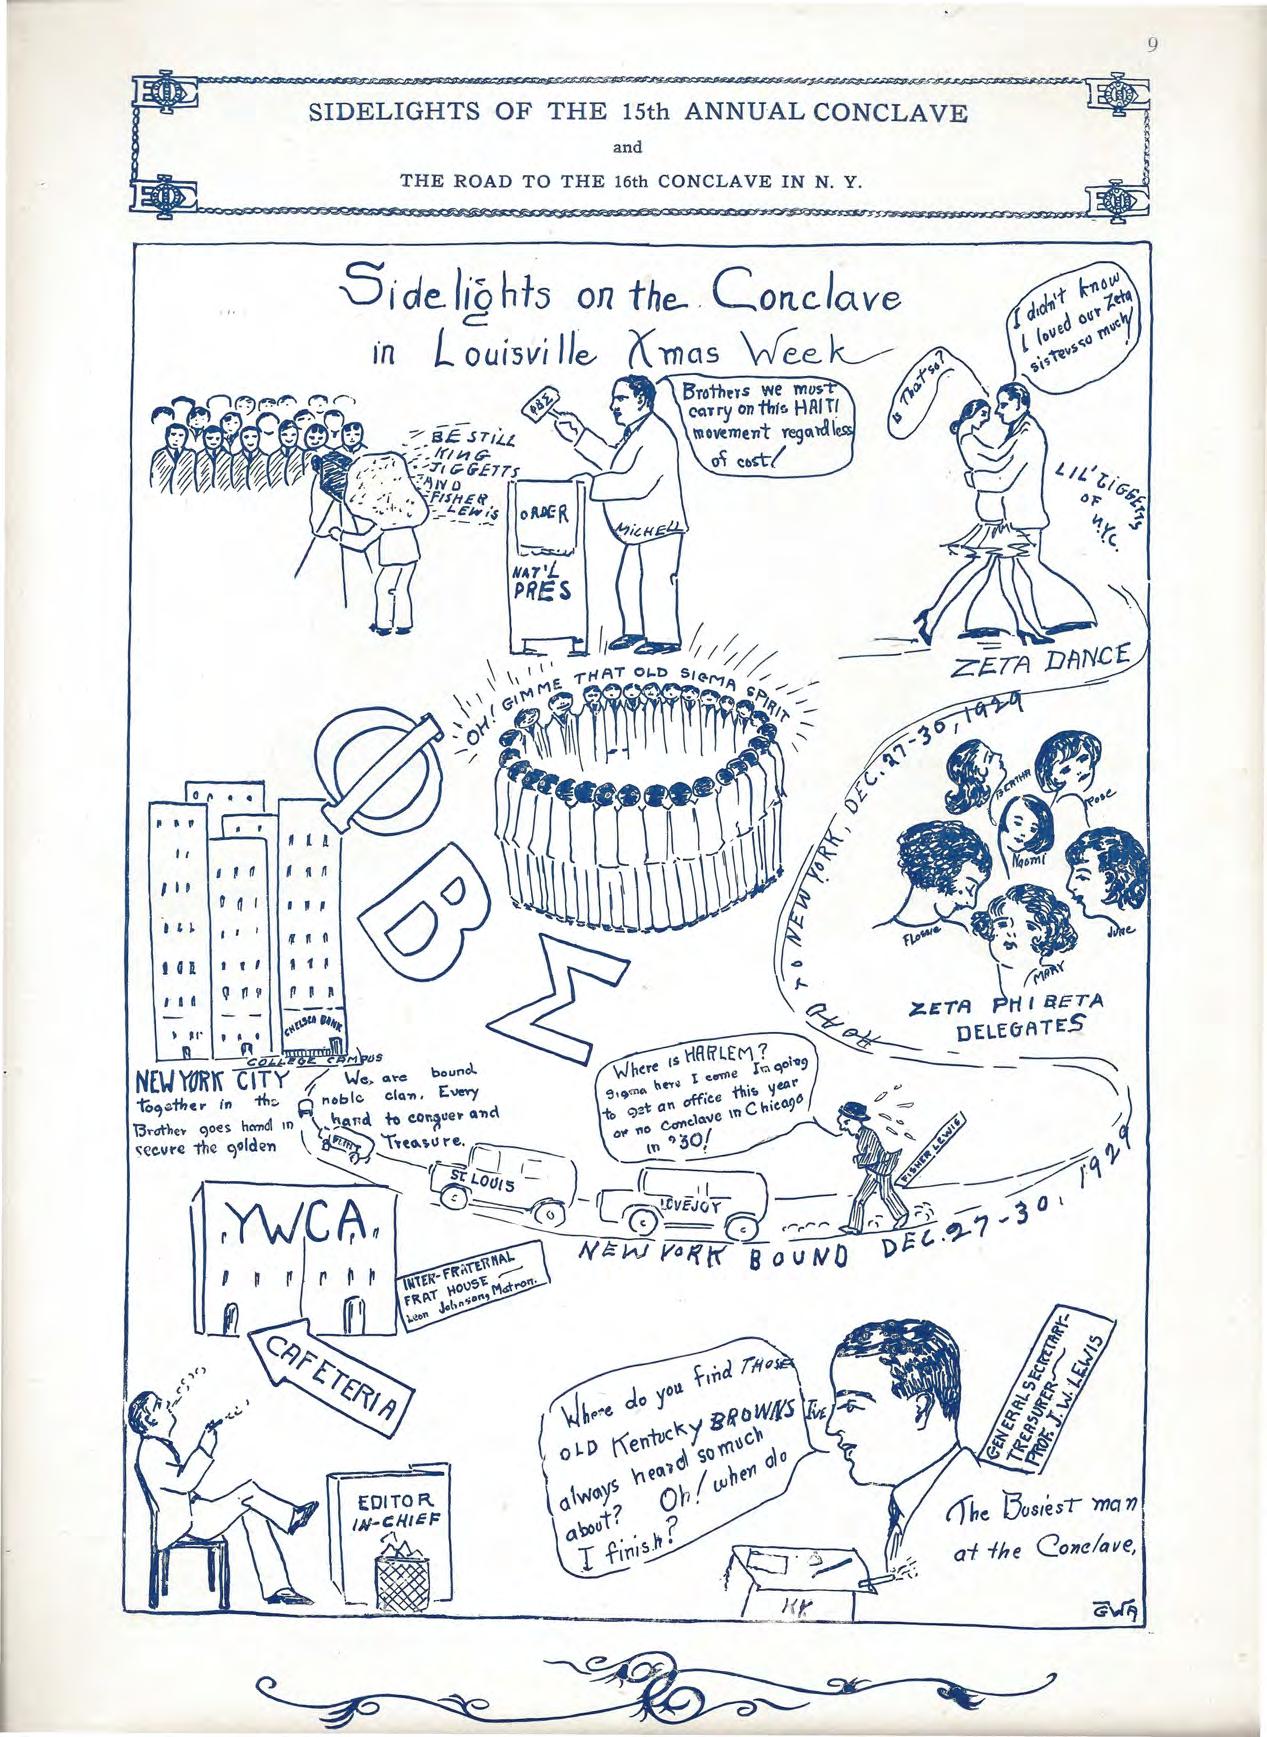 9
SIDELIGHTS OF THE 15th ANNUAL CONCLAVE
and
THE ROAD TO THE 16th CONCLAVE IN N. Y.
Sidelights on the Conclave
in Louisville Xmas Week
I didn't know
I loved our Zeta
sisters so much!
is That so?
Brothers we must
carry on this HAITI
movement regardless
of cost!
ΦΒΣ
BE STILL
KING
JIGGETTS
AND
FISHER
LEWIS
ORDER
NAT'L
PRES
MICHELL
LIL' JIGGETTS
OF
N.Y.C.
ZETA DANCE
OH! GIMME THAT OLD SIGMA SPIRIT
Φ
Β
Σ
ROAD TO NEW YORK, DEC. 27-30, 1929
BERTHA
Rose
Naomi
Flossie
June
MARY
ZETA PHI BETA
DELEGATES
CHELSEA BANK
COLLEGE CAMPUS
NEW YORK CITY
We, are bound
Together in the noble clan. Every
Brother goes hand in hand to conquer and
secure the golden Treasure.
Where is HARLEM?
Sigma here I come I'm going
to get an office this year
or no Conclave in Chicago
in '30!
FISHER LEWIS
ST. LOUIS
LOVEJOY
NEW YORK BOUND DEC. 27-30, 1929
YWCA
INTER-FRATERNAL
FRAT HOUSE
Leon Johnson, Matron.
CAFETERIA
EDITOR
IN-CHIEF
Where do you find THOSE
OLD Kentucky BROWNS I'VE
always heard so much
about? Oh! when do
I finish?
GENERAL SECRETARY-
TREASURER-
PROF. J. W. LEWIS
The Busiest man
at the Conclave,
KK
GWA